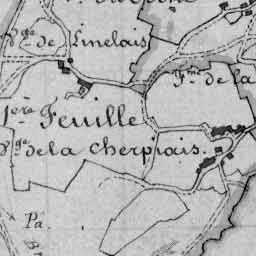 V.ge de Linelais
F.me de la
1.ère Feuille
V.ge de la Cherpiais.
Pa